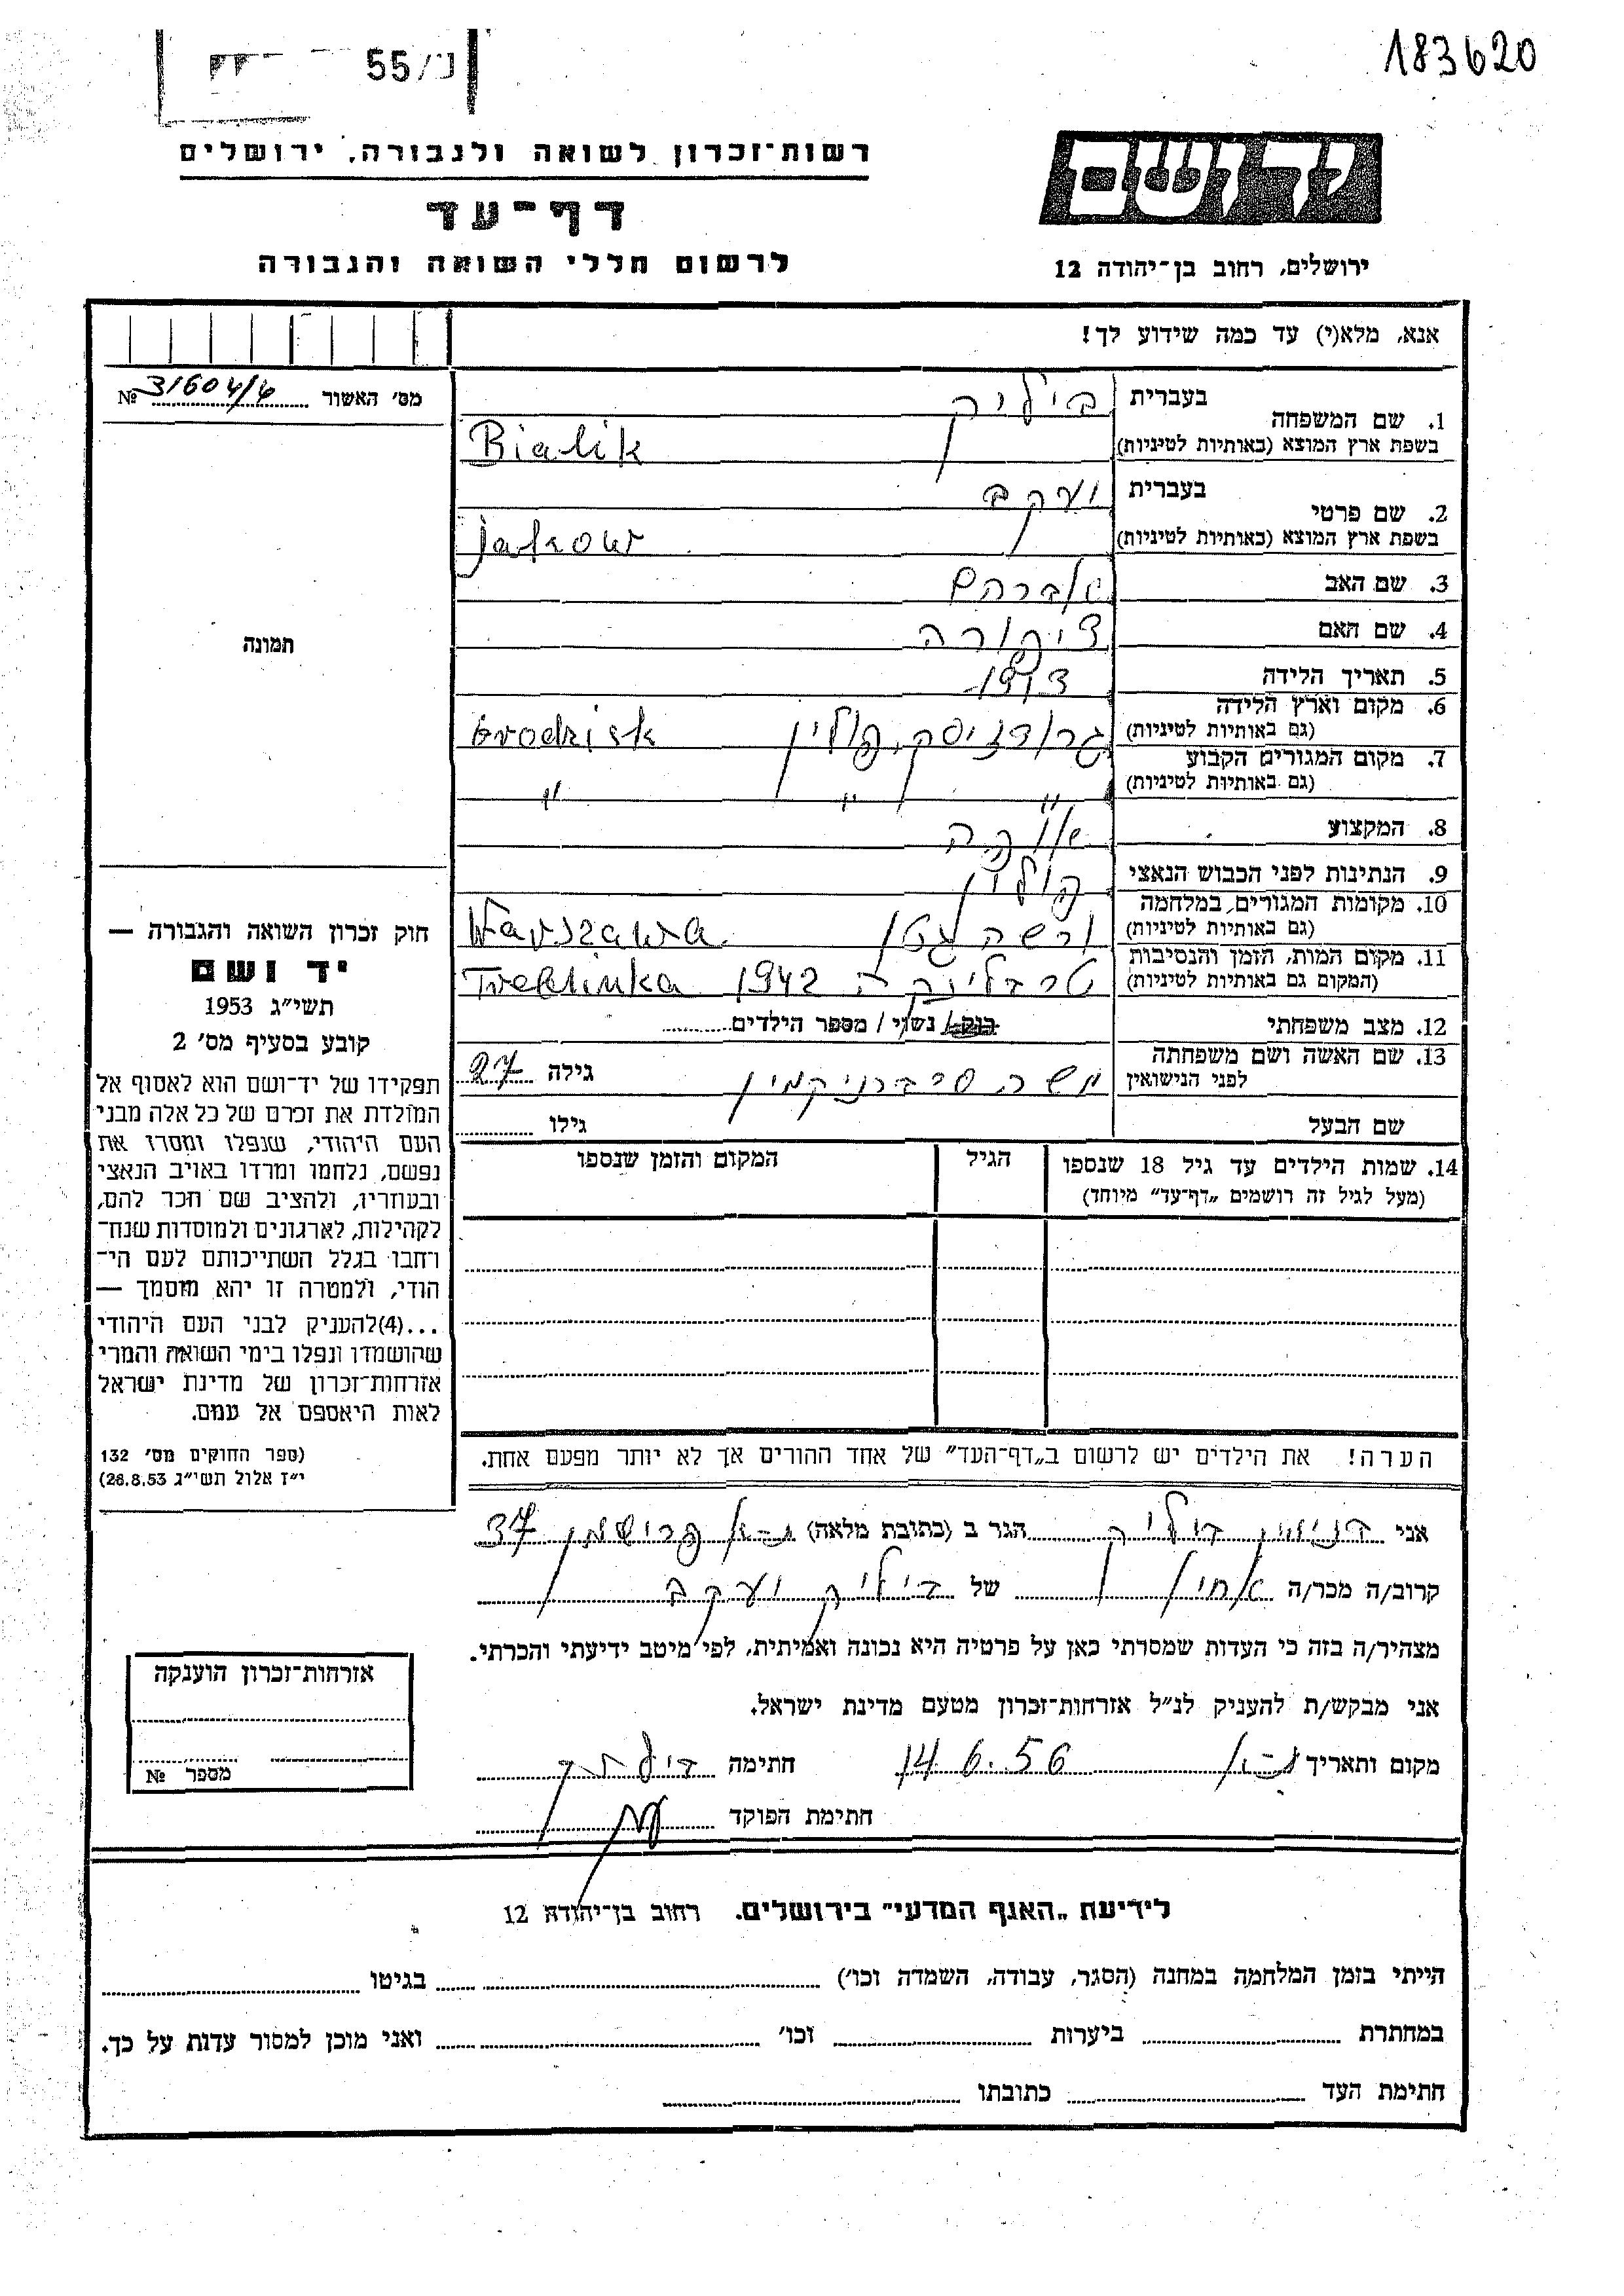 183620
55/נ
יד ושם
רשות־זכרון לשואה ולגבורה, ירושלים
דף־עד
לרשום חללי השואה והגבורה
ירושלים, רחוב בן־יהודה 12
אנא, מלא(י) עד כמה שידוע לך!
מס' האשור № 31604/4
1. שם המשפחה
בעברית ביליק
בשפת ארץ המוצא (באותיות לטיניות) Bialik
2. שם פרטי
בעברית יעקב
בשפת ארץ המוצא (באותיות לטיניות) Jakow
3. שם האב אברהם
4. שם האם ציפורה
5. תאריך הלידה 1913
6. מקום וארץ הלידה
(גם באותיות לטיניות) גרודזיסק, פולין Grodzisk
7. מקום המגורים הקבוע
(גם באותיות לטיניות) " " "
8. המקצוע אופה
9. הנתינות לפני הכבוש הנאצי פולין
10. מקומות המגורים במלחמה
(גם באותיות לטיניות) ורשה גטו Warszawa
11. מקום המות, הזמן והנסיבות
(המקום גם באותיות לטיניות) טרבלינקה 1942 Treblinka
12. מצב משפחתי רווק / נשוי / מספר הילדים
13. שם האשה ושם משפחתה
לפני הנישואין
גילה 27
שם הבעל גילו
14. שמות הילדים עד גיל 18 שנספו
(מעל לגיל זה רושמים „דף־עד" מיוחד)
הגיל
המקום והזמן שנספו
הערה! את הילדים יש לרשום ב„דף־העד" של אחד ההורים אך לא יותר מפעם אחת.
תמונה
חוק זכרון השואה והגבורה —
יד ושם
תשי"ג 1953
קובע בסעיף מס' 2
תפקידו של יד־ושם הוא לאסוף אל
המולדת את זכרם של כל אלה מבני
העם היהודי, שנפלו ומסרו את
נפשם, נלחמו ומרדו באויב הנאצי
ובעוזריו, ולהציב שם וזכר להם,
לקהילות, לארגונים ולמוסדות שנח־
רחבו בגלל השתייכותם לעם הי־
הודי, ולמטרה זו יהא מוסמך —
...(4)להעניק לבני העם היהודי
שהושמדו ונפלו בימי השואה והמרי
אזרחות־זכרון של מדינת ישראל
לאות היאספם אל עמם.
(ספר החוקים מס' 132
י"ז אלול תשי"ג 28.8.53)
אני ביליק הגר ב (כתובת מלאה) ת-א פרישמן 37
קרוב/ה מכר/ה אחי של ביליק יעקב
מצהיר/ה בזה כי העדות שמסרתי כאן על פרטיה היא נכונה ואמיתית, לפי מיטב ידיעתי והכרתי.
אני מבקש/ת להעניק לנ"ל אזרחות־זכרון מטעם מדינת ישראל.
מקום ותאריך ת-א 14.6.56 חתימה
חתימת הפוקד
אזרחות־זכרון הוענקה
מספר №
לידיעת „האגף המדעי" בירושלים. רחוב בן־יהודה 12
הייתי בזמן המלחמה במחנה (הסגר, עבודה, השמדה וכו') בגיטו
במחתרת ביערות וכו' ואני מוכן למסור עדות על כך.
חתימת העד כתובתו